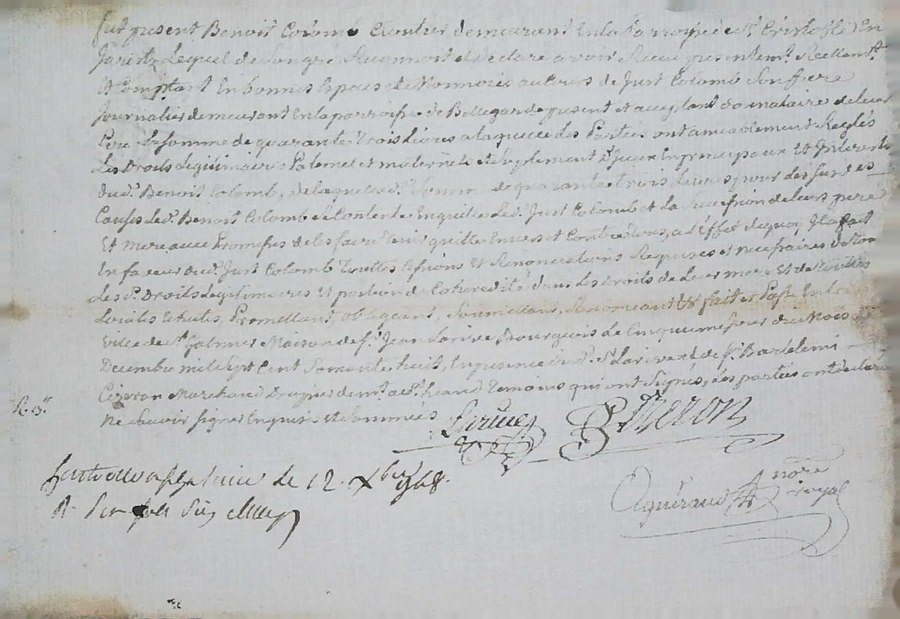 fut present Benoist Colomb Cloutier demeurant En la Parroisse de St Cristofle En
Jarest, Lequel de Son gré Reconnoit et declare avoir Receu presentemt. Reellemt.
Et Comptant En bonnes Especes de Monnoie au cours de Just Colomb Son frere
Journalier demeurant En la parroisse de Bellegarde present et acceptant donnataire de leur
Pere La Somme de quarante trois Livres a laquelle des Parties ont amiablement Reglés
Les Droits Legitimaires Paternels et maternels et Suplement d'Iceux En principaux Et Interets
dud. Benoist Colomb, de laquelle de. Somme de quarante trois Livres pour des Susd.
Causes Led. Benoist Colomb Se Contente En quitte Led. Just Colomb et la Succession de Leurs pere
Et Mere avec Promesses de les faire tenir quitte Envers et Contre tous, a L'Effet de quoy Il a fait
En faveur dud. Just Colomb Touttes Cessions Et Renonciations Requises et necessaires de tous
Les Sd. Droits Legitimaires Et portion de Coheredité dans Les Droits de Leur mere Et de touttes
Loialles Echutes, Promettant, obligeant, Soumettant, Renonceant &c fait et Passé En la
ville de St. Galmier Maison de Sr. Jean Larive Bourgeois Le Cinquieme Jour du Mois de
Decembre mil Sept Cent Soixante huit, En presence dud. Sr. Larive et de Sr. Bartelemi
Cizeron Marchand Drapier demt. aud. St Galmier Temoins qui ont Signés, Les parties ont declaré
R. 3s.
Ne Scavoir Signer Enquis et Sommées
Larive
B Cizeron
Controllé a St Galmier le 12. Xbre 1768.
R. Six Sols Six deniers
Aguiraud
Nore
royal